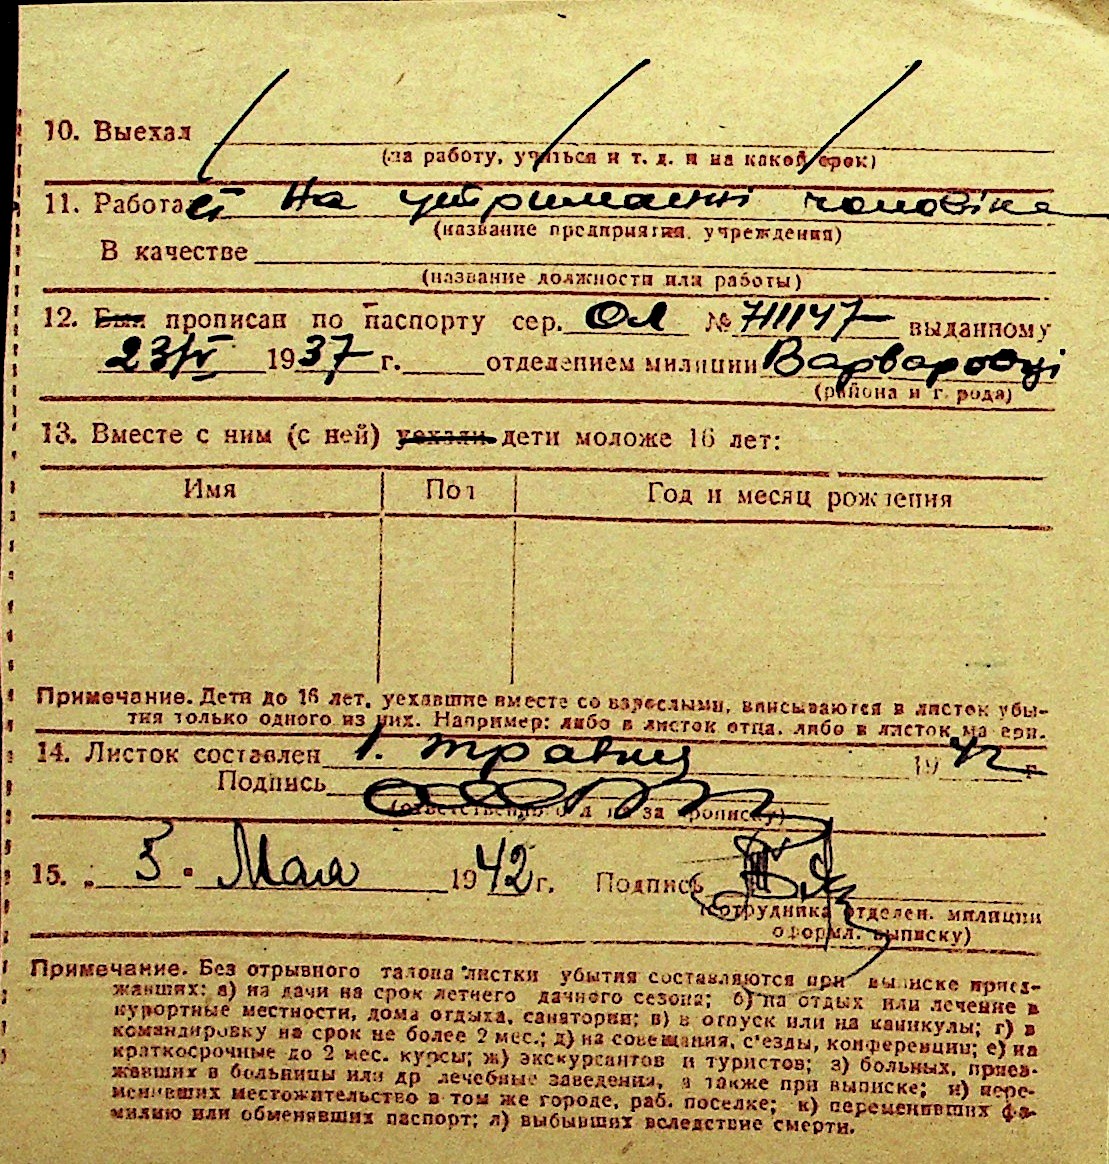 10. Выехал
(на работу, учиться и т. д. и на какой срок)
11. Работает На утриманні чоловіка
(название предприятия, учреждения)
В качестве
(название должности или работы)
12. Был прописан по паспорту сер. ОЛ № 711147 выданному
23/IV 1937 г. отделением милиции Варваровці
(района и города)
13. Вместе с ним (с ней) уехали дети моложе 16 лет:
Имя Пол Год и месяц рождения
Примечание. Дети до 16 лет, уехавшие вместе со взрослыми, вписываются в листок убы-
тия только одного из них. Например: либо в листок отца, либо в листок матери.
14. Листок составлен 1. травня 1942 г.
Подпись
(ответственного за прописку)
15. „ 3 " Мая 1942 г. Подпись
(сотрудника отделен. милиции
оформл. выписку)
Примечание. Без отрывного талона листки убытия составляются при выписке приез-
жавших: а) на дачи на срок летнего дачного сезона; б) на отдых или лечение в
курортные местности, дома отдыха, санатории; в) в отпуск или на каникулы; г) в
командировку на срок не более 2 мес.; д) на совещания, с'езды, конференции; е) на
краткосрочные до 2 мес. курсы; ж) экскурсантов и туристов; з) больных, приез-
жавших в больницы или др лечебные заведения, а также при выписке; и) пере-
менивших местожительство в том же городе, раб. поселке; к) переменивших фа-
милию или обменявших паспорт; л) выбывших вследствие смерти.